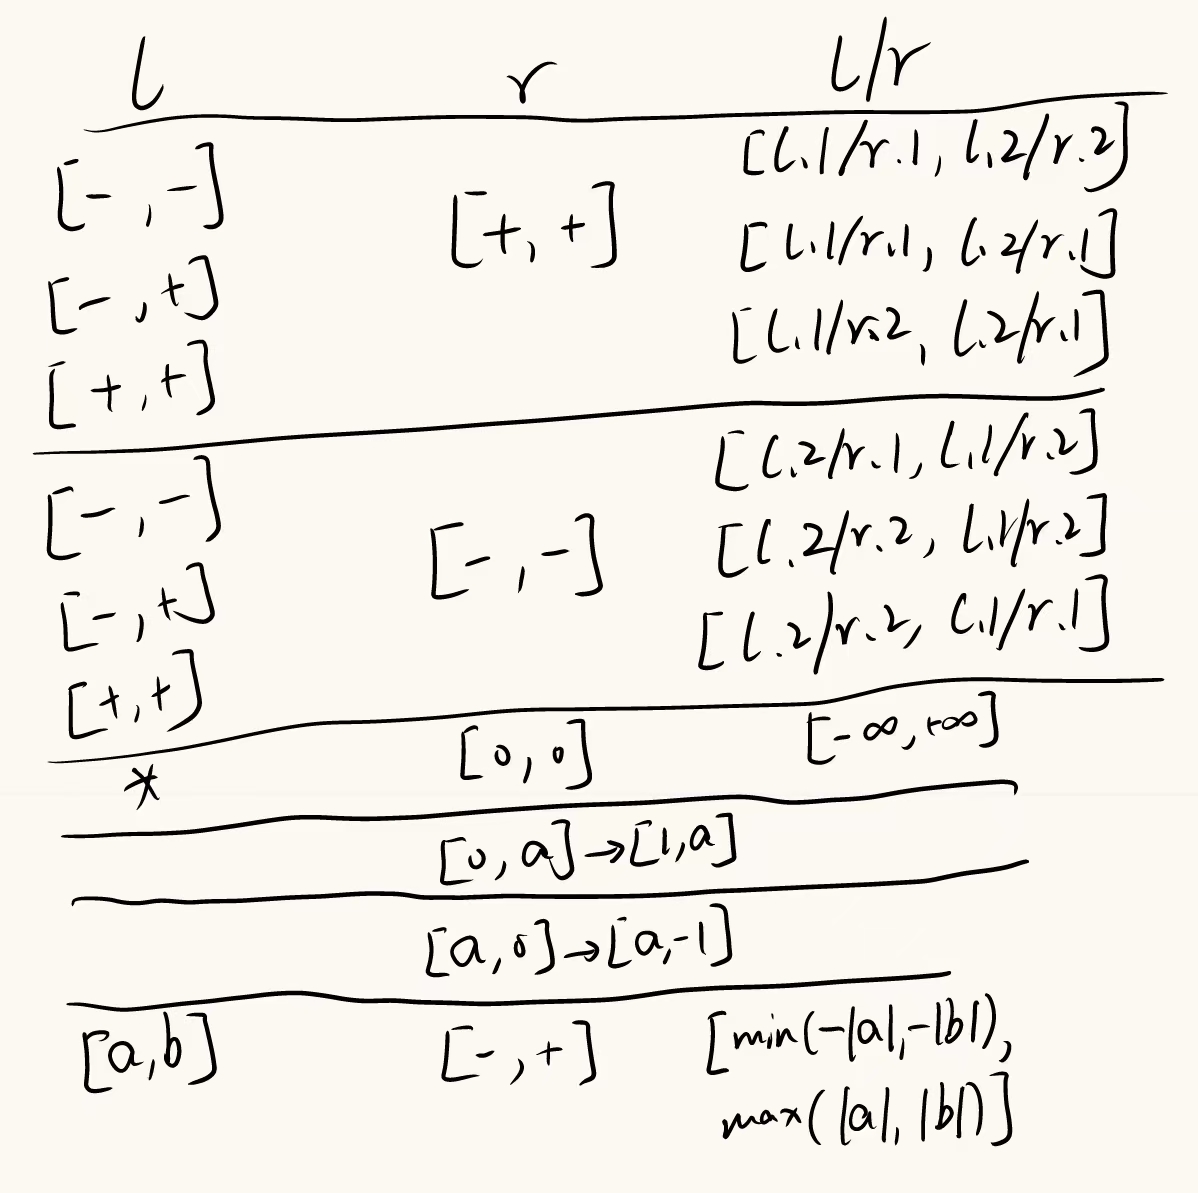 l r l/r
[-,-] [+,+] [l.1/r.1, l.2/r.2]
[-,+] [l.1/r.1, l.2/r.1]
[+,+] [l.1/r.2, l.2/r.1]
[-,-] [-,-] [l.2/r.1, l.1/r.2]
[-,+] [l.2/r.2, l.1/r.2]
[+,+] [l.2/r.2, l.1/r.1]
* [0,0] [-∞,+∞]
[0,a]→[1,a]
[a,0]→[a,-1]
[a,b] [-,+] [min(-|a|,-|b|),
max(|a|,|b|)]